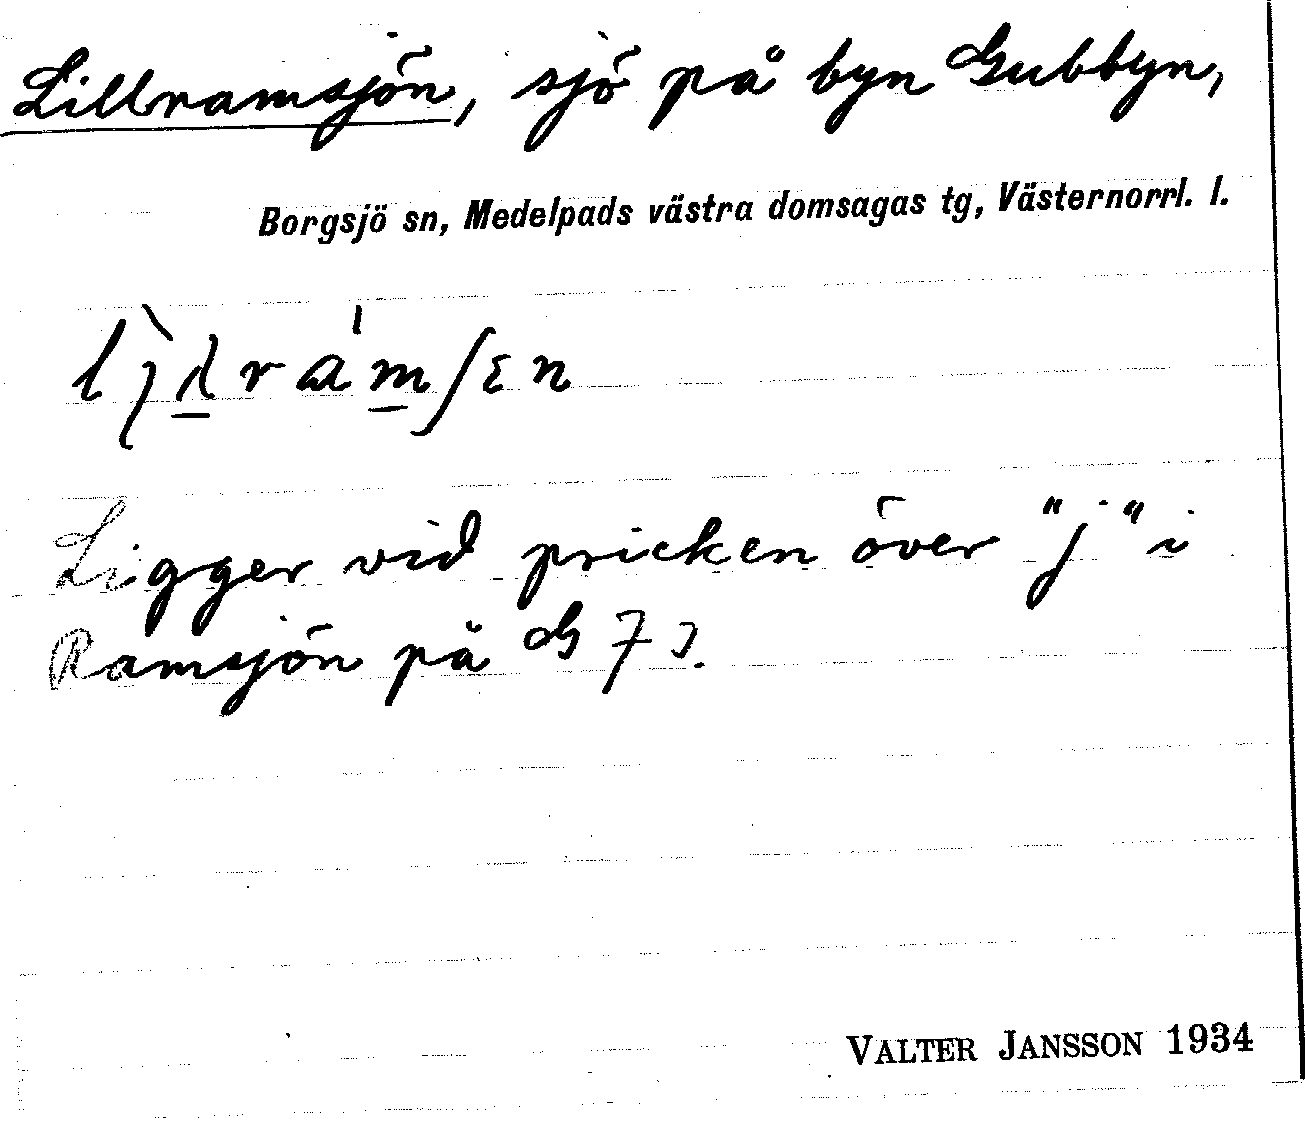 Lillramsjön, sjö på byn Gubbyn,
Borgsjö sn, Medelpads västra domsagas tg, Västernorrl. l.
Ligger vid pricken över "j" i
Ramsjön på G 7
VALTER JANSSON 1934